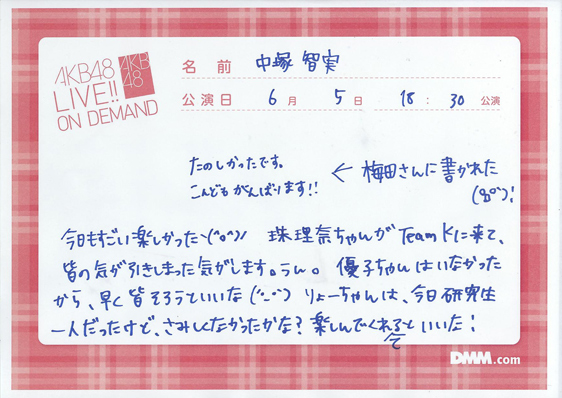 AKB48
LIVE!!
ON DEMAND
AKB
48
名 前 中塚 智実
公演日 6月 5日 18:30 公演
たのしかったです。
こんどもがんばります!!
← 梅田さんに書かれた
今日もすごい楽しかったヽ(^o^)ノ 珠理奈ちゃんがTeam Kに来て、
皆の気が引きしまった気がします。うん。 優子ちゃんはいなかった
から、早く皆そろうといいな(^-^) りょーちゃんは、今日研究生
一人だったけど、さみしくなかったかな? 楽しんでくれるといいな!
て
DMM.com